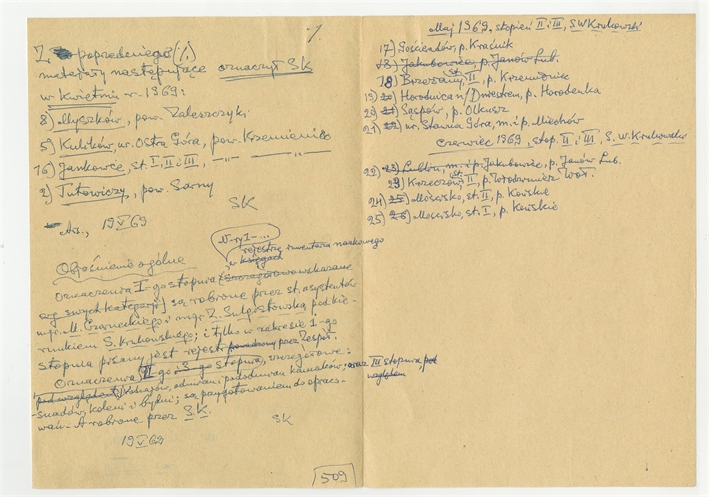 •/.
Z poprzedniego (•/.)
materjały następujące oznaczył SK
w kwietniu r. 1969:
8) Myszków, pow. Zaleszczyki
5) Kulików, ur. Ostra Góra, pow. Krzemieniec
16) Jankowce, st. I, II i III, —„— —„—
2) Tutowiczy, pow. Sarny
SK
19 V 69
Objaśnienie ogólne
N-ry 1-...
rejestrze inwentarza naukowego
w księgach
Oznaczenia I-go stopnia (szczegółowo wskazane
swych kategorji) są robione przez st. asystentów
mgr. M. Czarneckiego i mgr. Z. Sulgostowską pod kie-
runkiem S. Krukowskiego; i tylko w zakresie 1-go
stopnia pisany jest rejestr prowadzony przez Zespół.
Oznaczenia II-go i 3-go stopnia, szczegółowe:
pod względem rodzajów, odmian i pododmian kamaków, oraz III stopnia, pod
względem
suadów, kolein i bytni; są przygotowaniem do opraco-
wań - A robione przez S.K.
SK
19 V 69
509
Maj 1969, stopień II i III, S W Krukowski
17) Gościeradów, p. Kraśnik
18) Jakubowice, p. Janów Lub.
18) Brzeziny, st. II, p. Krzemieniec
19) 20) Horodnica n/Dniestrem, p. Horodenka
20) 21) Sąspów, p. Olkusz
21) 22) ur. Stawnia Góra, m. i p. Miechów
Czerwiec 1969, stop. II i III, S. W. Krukowski
22) 23) Lublin, m. i p. Jakubowice, p. Janów Lub.
23) Krzeczów, st. II, p. Włodzimierz Woł.
24) 25) Mościsko, st. II, p. Końskie
25) 26) Mościsko, st. I, p. Końskie